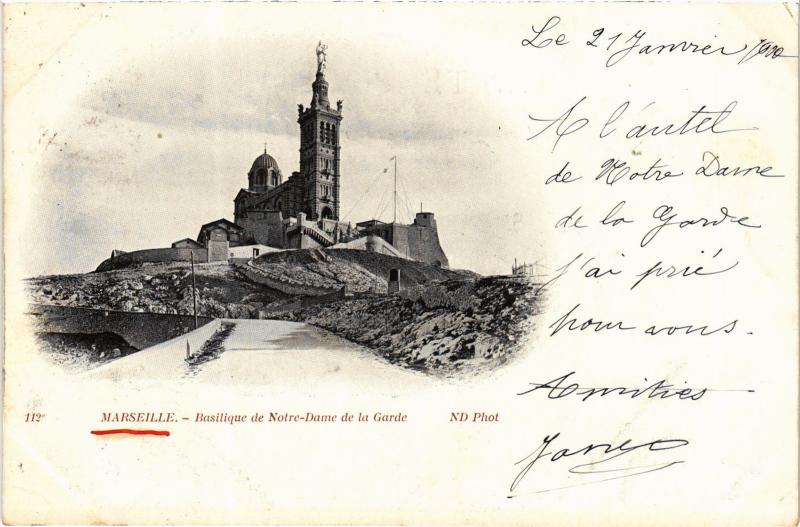 Le 21 Janvier 1900
A l'autel
de Notre Dame
de la Garde
J'ai prié
pour vous.
Amitiés
112e MARSEILLE. – Basilique de Notre-Dame de la Garde ND Phot